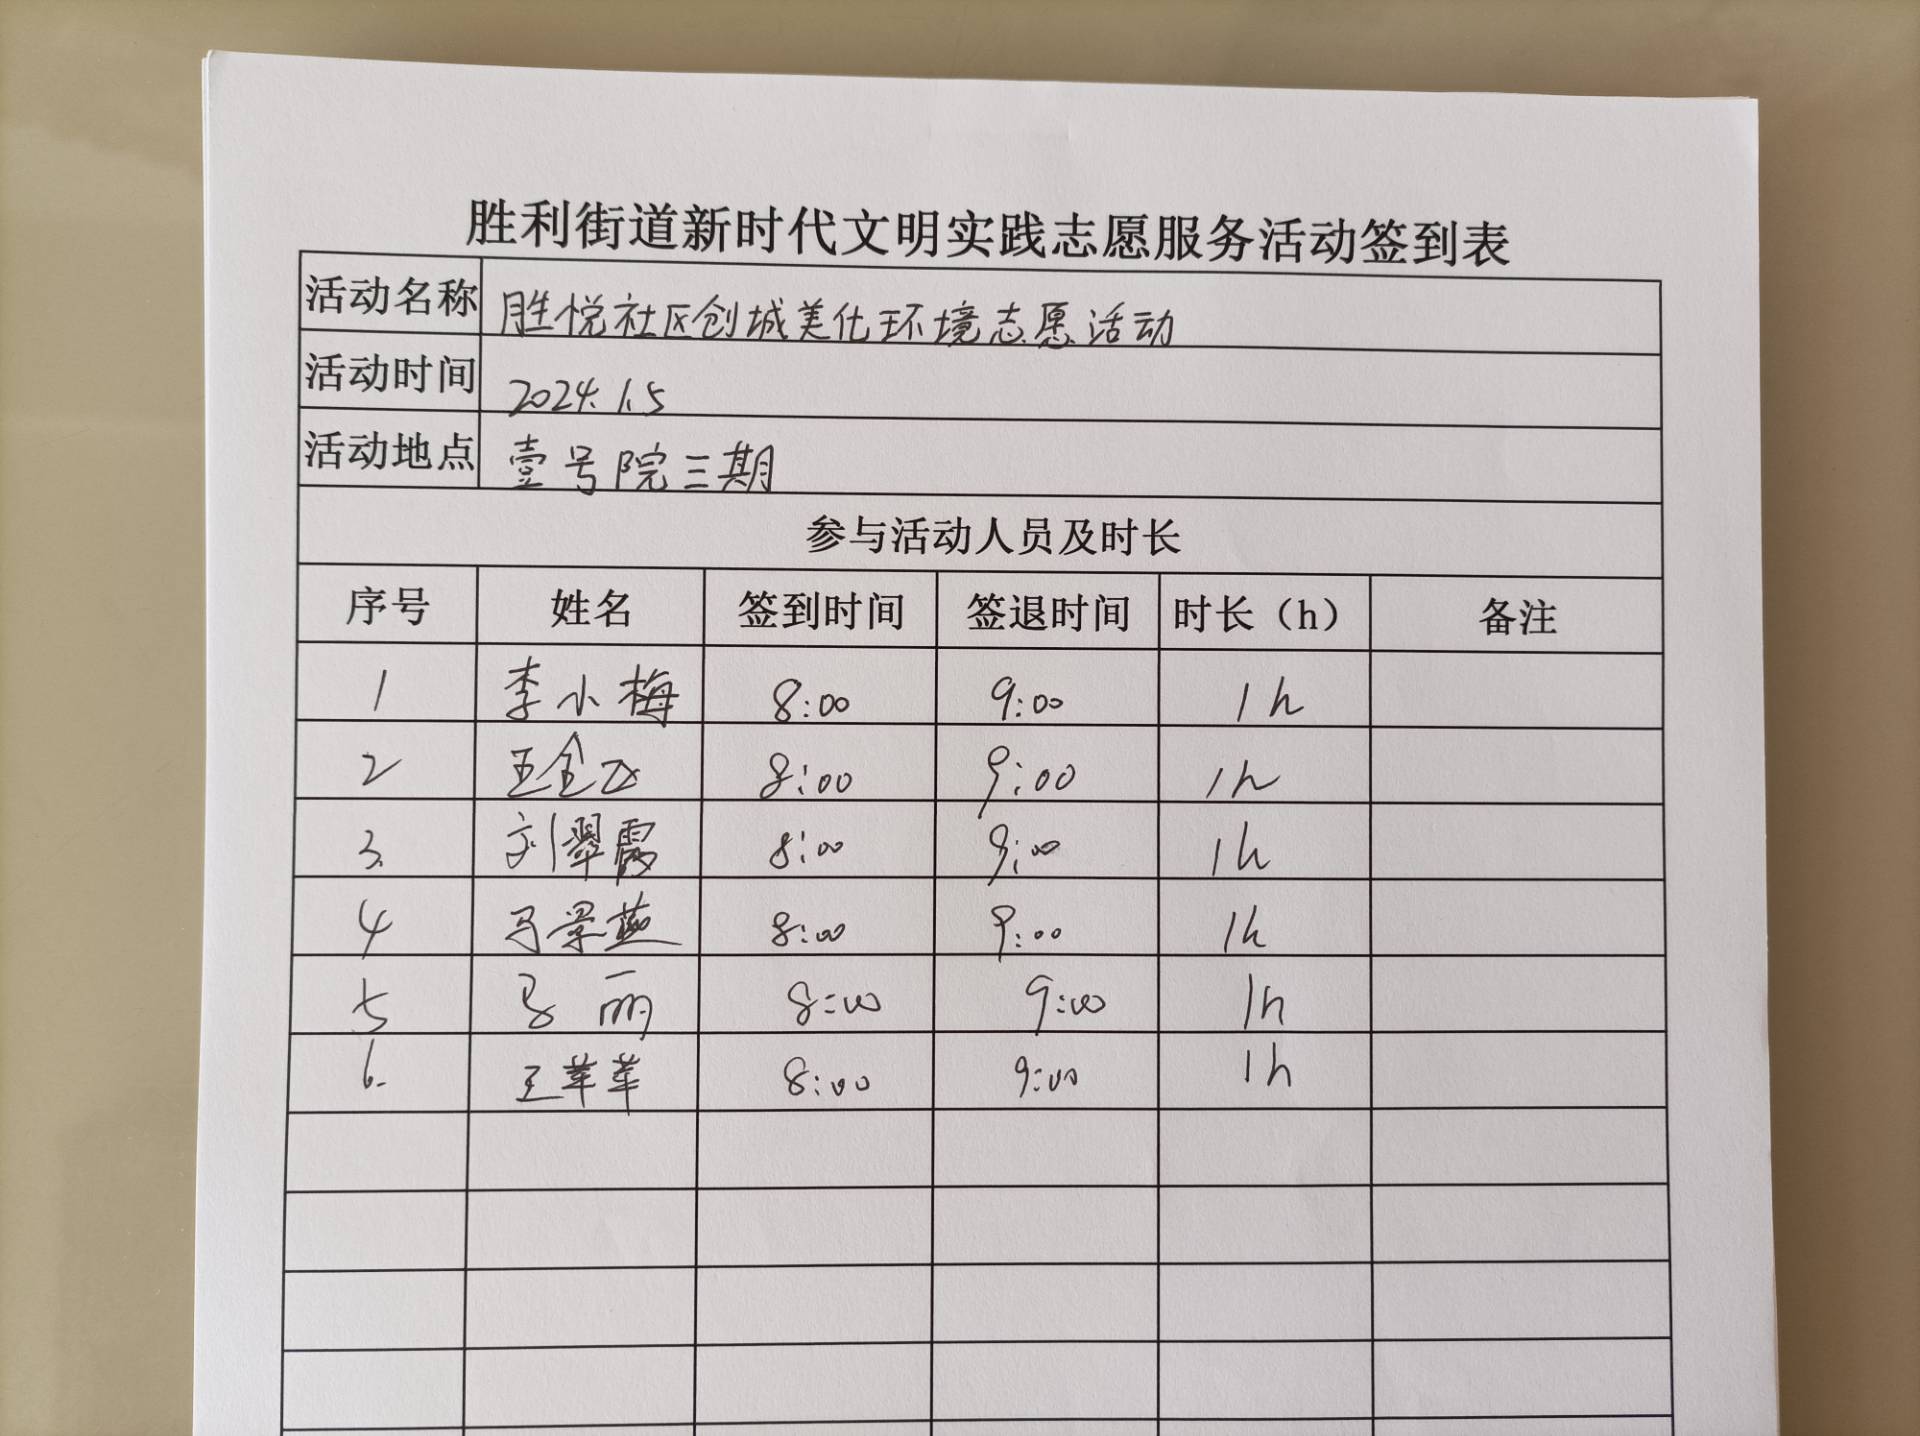 胜利街道新时代文明实践志愿服务活动签到表
活动名称 胜悦社区创城美化环境志愿活动
活动时间 2024.1.5
活动地点 壹号院三期
参与活动人员及时长
序号 姓名 签到时间 签退时间 时长（h） 备注
1 李小梅 8:00 9:00 1h
2 王 8:00 9:00 1h
3. 刘翠霞 8:00 9:00 1h
4 马景燕 8:00 9:00 1h
5 马丽 8:00 9:00 1h
6. 王苹苹 8:00 9:00 1h